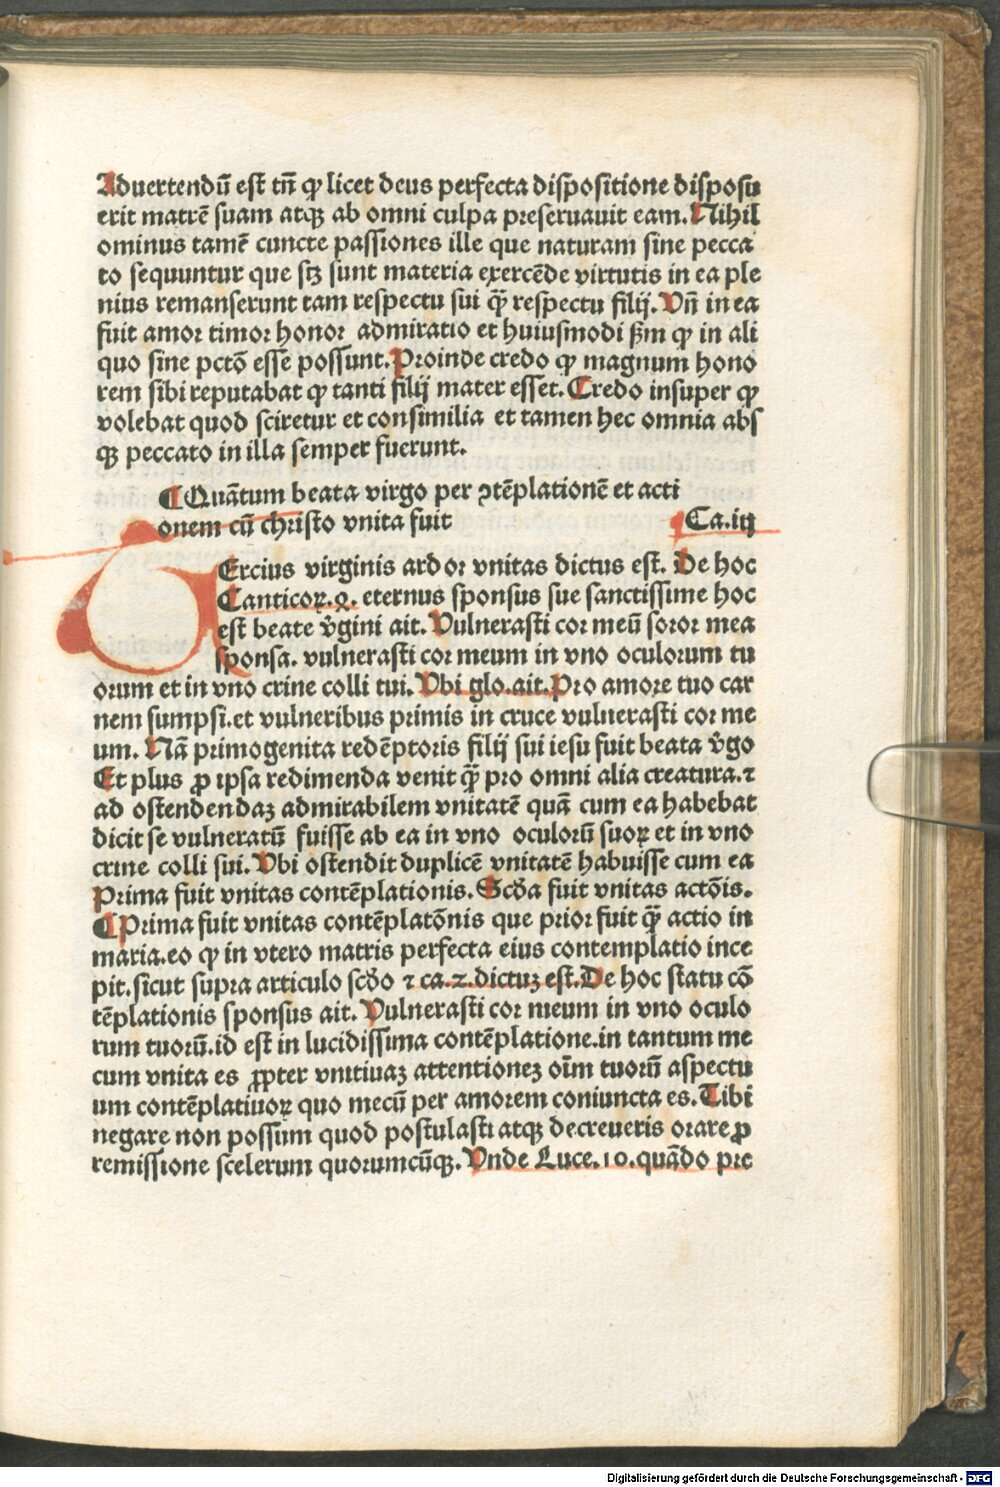 Aduertendū est tn̄ ꝙ licet deus perfecta dispositione disposu
erit matrē suam atqꝫ ab omni culpa preseruauit eam. Nihil
ominus tamē cuncte passiones ille que naturam sine pecca
to sequuntur que scꝫ sunt materia exercēde virtutis in ea ple
nius remanserunt tam respectu sui qͣꝫ respectu filij. Vn̄ in ea
fuit amor timor honor admiratio et huiusmodi ẜm ꝙ in ali
quo sine pctō esse possunt. Proinde credo ꝙ magnum hono
rem sibi reputabat ꝙ tanti filij mater esset. Credo insuper ꝙ
volebat quod sciretur et consimilia et tamen hec omnia abs
qꝫ peccato in illa semper fuerunt.
¶ Quātum beata virgo per ꝯtēplationē et acti
onem cū christo vnita fuit Ca. iij
TErcius virginis ardor vnitas dictus est. De hoc
Canticoꝝ. 4. eternus sponsus sue sanctissime hoc
est beate v̄gini ait. Vulnerasti cor meū soror mea
sponsa. vulnerasti cor meum in vno oculorum tu
orum et in vno crine colli tui. Vbi glo. ait. Pro amore tuo car
nem sumpsi. et vulneribus primis in cruce vulnerasti cor me
um. Nā primogenita redēptoris filij sui iesu fuit beata v̄go
Et plus ꝓ ipsa redimenda venit qͣꝫ pro omni alia creatura. ⁊
ad ostendendaꝫ admirabilem vnitatē quā cum ea habebat
dicit se vulneratū fuisse ab ea in vno oculorū suoꝝ et in vno
crine colli sui. Vbi ostendit duplicē vnitatē habuisse cum ea
Prima fuit vnitas contēplationis. Scd̄a fuit vnitas actōis.
¶ Prima fuit vnitas contēplatōnis que prior fuit qͣꝫ actio in
maria. eo ꝙ in vtero matris perfecta eius contemplatio ince
pit. sicut supra articulo scd̄o ⁊ ca. 2. dictuꝫ est. De hoc statu cō
tēplationis sponsus ait. Vulnerasti cor meum in vno oculo
rum tuorū. id est in lucidissima contēplatione. in tantum me
cum vnita es ꝓpter vnitiuaꝫ attentioneꝫ oīm tuorū aspectu
um contēplatiuoꝝ quo mecū per amorem coniuncta es. Tibi
negare non possum quod postulasti atqꝫ decreueris orare ꝓ
remissione scelerum quorumcūqꝫ. Vnde Luce. 10. quādo pre
Digitalisierung gefördert durch die Deutsche Forschungsgemeinschaft - DFG